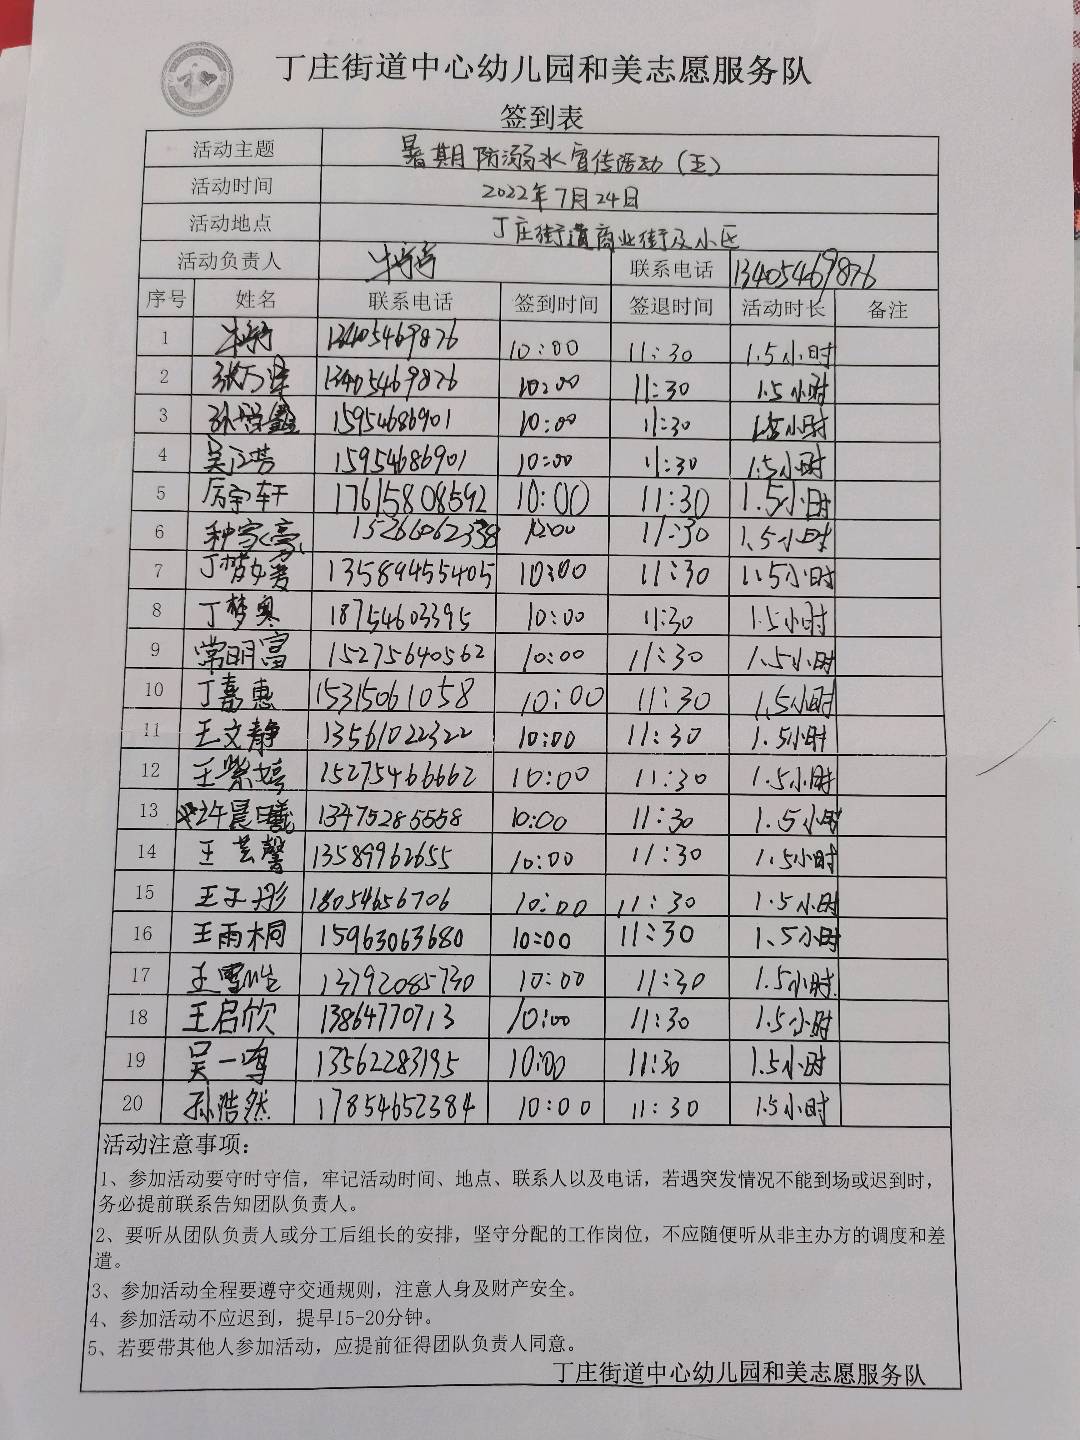 和
丁庄街道中心幼儿园和美志愿服务队
签到表
活动主题 暑期防溺水宣传活动（五）
活动时间 2022年7月24日
活动地点 丁庄街道商业街及小区
活动负责人 联系电话 13405469876
序号 姓名 联系电话 签到时间 签退时间 活动时长 备注
1 13405469876 10:00 11:30 1.5小时
2 13405469876 10:00 11:30 1.5小时
3 孙培鑫 15954686901 10:00 11:30 1.5小时
4 吴江芳 15954686901 10:00 11:30 1.5小时
5 厉宇轩 17615808592 10:00 11:30 1.5小时
6 种家豪 15266062338 10:00 11:30 1.5小时
7 丁梦 13589455405 10:00 11:30 1.5小时
8 丁梦寒 18754603395 10:00 11:30 1.5小时
9 常明富 15275640562 10:00 11:30 1.5小时
10 丁嘉惠 15315061058 10:00 11:30 1.5小时
11 王文静 13561022322 10:00 11:30 1.5小时
12 王紫婷 15275466662 10:00 11:30 1.5小时
13 许晨曦 13475285558 10:00 11:30 1.5小时
14 王芸馨 13589962655 10:00 11:30 1.5小时
15 王子彤 18054656706 10:00 11:30 1.5小时
16 王雨桐 15963063680 10:00 11:30 1.5小时
17 王雪 13792085730 10:00 11:30 1.5小时
18 王启欣 13864770713 10:00 11:30 1.5小时
19 吴一鸣 13562283195 10:00 11:30 1.5小时
20 孙浩然 17854652384 10:00 11:30 1.5小时
活动注意事项：
1、参加活动要守时守信，牢记活动时间、地点、联系人以及电话，若遇突发情况不能到场或迟到时，
务必提前联系告知团队负责人。
2、要听从团队负责人或分工后组长的安排，坚守分配的工作岗位，不应随便听从非主办方的调度和差
遣。
3、参加活动全程要遵守交通规则，注意人身及财产安全。
4、参加活动不应迟到，提早15-20分钟。
5、若要带其他人参加活动，应提前征得团队负责人同意。
丁庄街道中心幼儿园和美志愿服务队